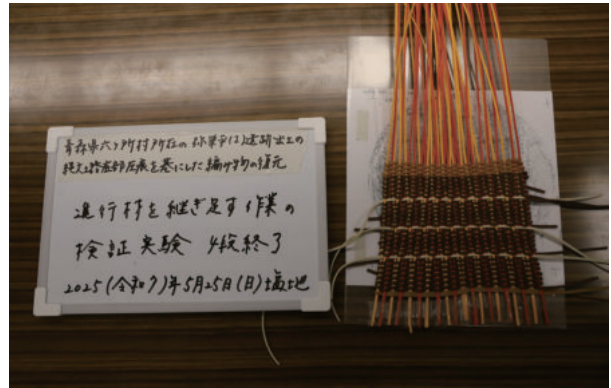 青森県六ヶ所村所在の弥栄平(1)遺跡出土の
縄文土器底部圧痕を基にした編み物の復元
進行材を継ぎ足す作業の
検証実験 4段終了
2025(令和7)年5月25日(日)塩地